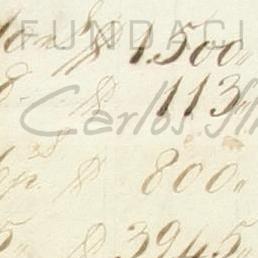 FUNDACI
$ 1.500,,
$ 113,,
Carlos
$ 800,,
$ 3945,,